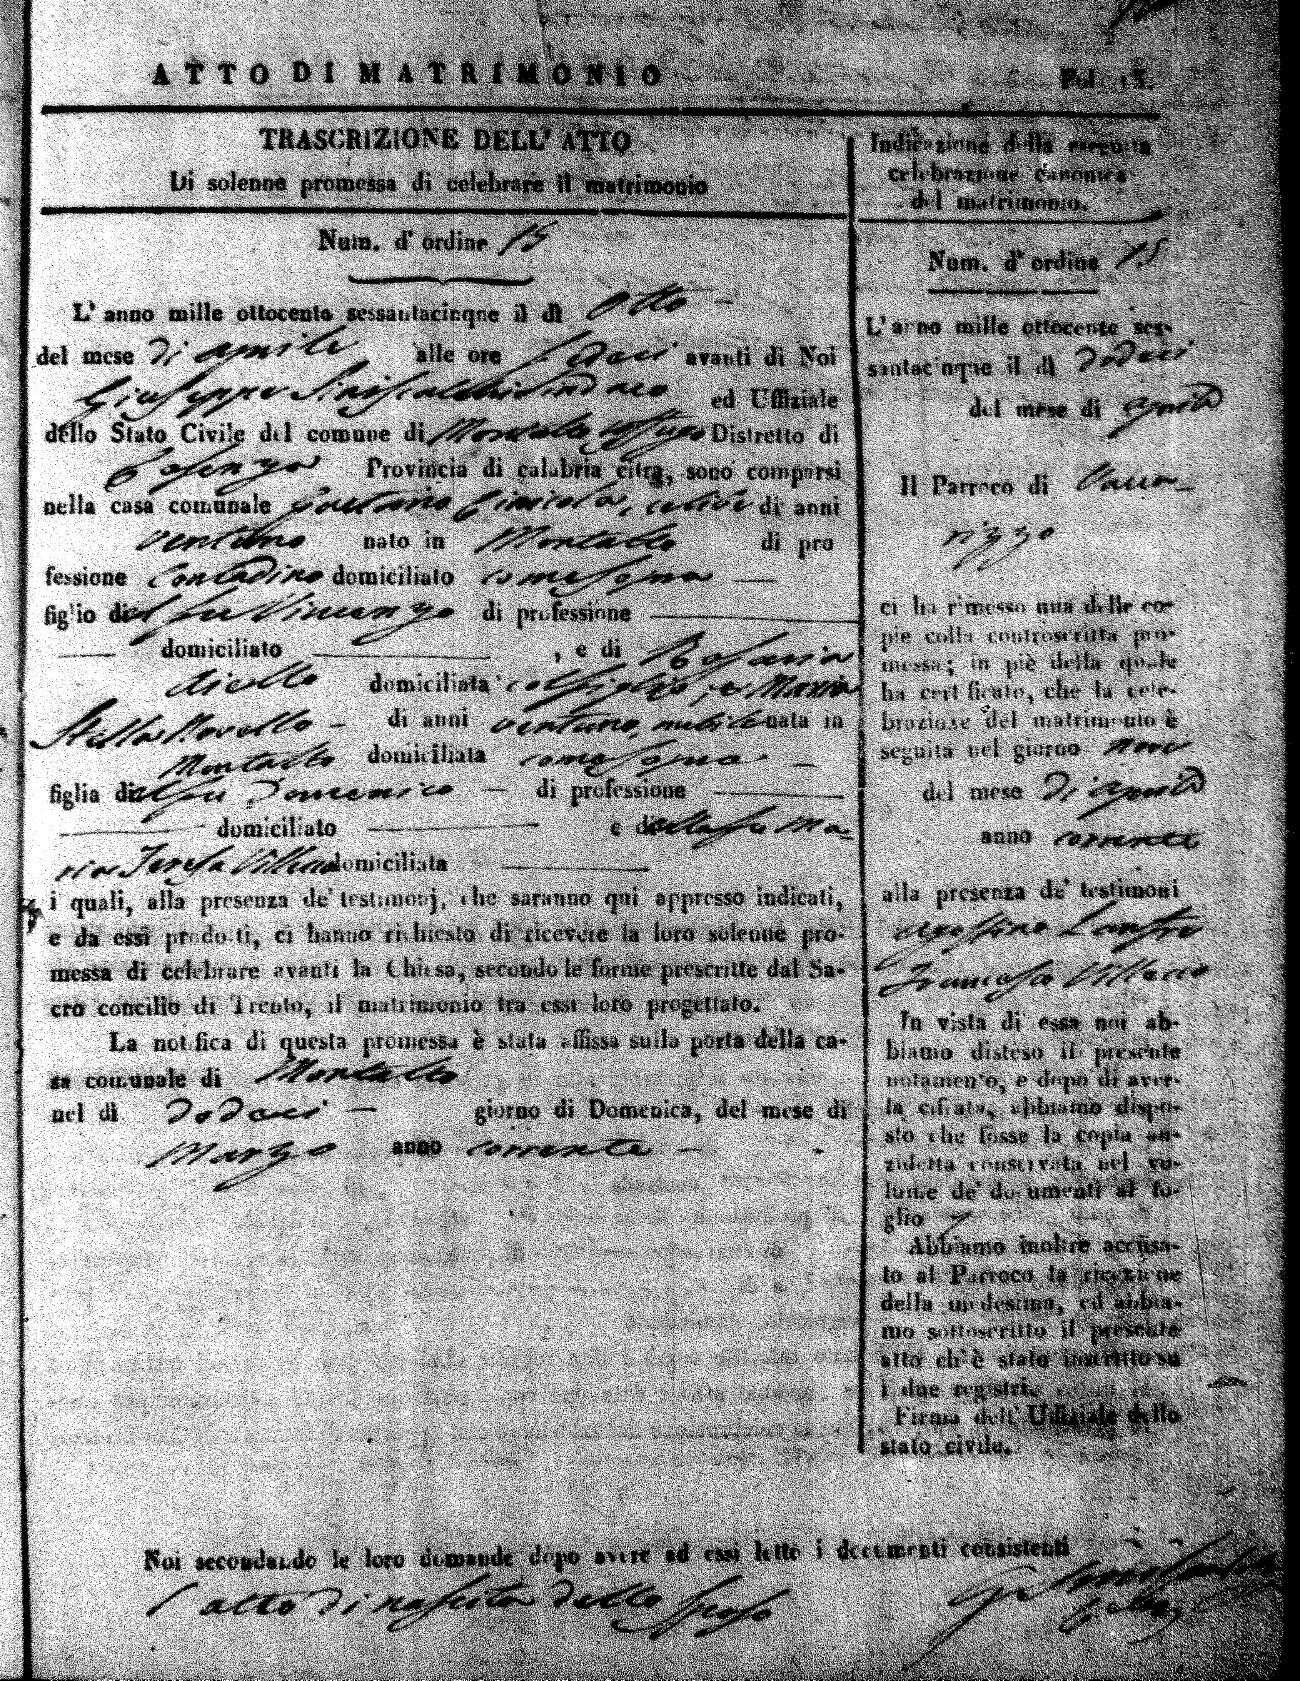 ATTO DI MATRIMONIO
Fol. 15.
TRASCRIZIONE DELL' ATTO
Di solenne promessa di celebrare il matrimonio
Num. d' ordine 15
L' anno mille ottocento sessantacinqne il dì Otto
del mese di aprile alle ore avanti di Noi
Giuseppe Sindaco ed Uffiziale
dello Stato Civile del comune di Montalto Uffugo Distretto di
Cosenza Provincia di calabria citra, sono comparsi
nella casa comunale Gaetano celibe di anni
ventuno nato in Montalto di pro
fessione Contadino domiciliato come sopra
figlio di del fu Vincenzo di professione
domiciliato , e di Rosaria
Aiello domiciliata col figlio, e Maria
Stella Morello di anni ventuno, nubile nata in
Montalto domiciliata come sopra
figlia di del fu Domenico di professione
domiciliato e di della fu Ma
ria Teresa Villacco domiciliata
i quali, alla presenza de' testimonj, che saranno qui appresso indicati,
e da essi prodotti, ci hanno richiesto di ricevere la loro solenne pro-
messa di celebrare avanti la Chiesa, secondo le forme prescritte dal Sa-
cro concilio di Trento, il matrimonio tra essi loro progettato.
La notifica di questa promessa è stata affissa sulla porta della ca-
sa comunale di Montalto
nel dì dodeci giorno di Domenica, del mese di
Marzo anno corrente
Indicazione della eseguita
celebrazione canonica
del matrimonio.
Num. d' ordine 15
L' anno mille ottocento ses-
santacinque il dì dodeci
del mese di aprile
Il Parroco di Vacca
rizzo
ci ha rimesso una delle co-
pie colla controscritta pro-
messa; in piè della quale
ha certificato, che la cele-
brazione del matrimonio è
seguita nel giorno nove
del mese di aprile
anno corrente
alla presenza de' testimoni
Agostino
Francesco Villacco
In vista di essa noi ab-
biamo disteso il presente
notamento, e dopo di aver-
la cifrata, abbiamo dispo-
sto che fosse la copia an-
zidetta conservata nel vo-
lume de' documenti al fo-
glio
Abbiamo inoltre accusa-
to al Parroco la ricezione
della medesima, ed abbia-
mo sottoscritto il presente
atto ch' è stato inscritto su
i due registri.
Firma dell' Uffiziale dello
stato civile.
Noi secondando le loro domande dopo avere ad essi letto i documenti consistenti
l'atto di nascita dello sposo